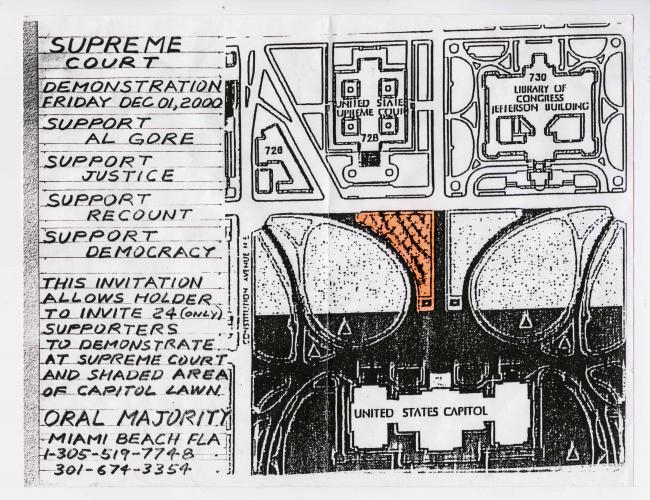 SUPREME
COURT
DEMONSTRATION
FRIDAY DEC 01, 2000
SUPPORT
AL GORE
SUPPORT
JUSTICE
SUPPORT
RECOUNT
SUPPORT
DEMOCRACY
THIS INVITATION
ALLOWS HOLDER
TO INVITE 24 (ONLY)
SUPPORTERS
TO DEMONSTRATE
AT SUPREME COURT
AND SHADED AREA
OF CAPITOL LAWN
ORAL MAJORITY
MIAMI BEACH FLA
1-305-519-7748
301-674-3354
726
UNITED STATE
UPREME COUR
728
730
LIBRARY OF
CONGRESS
JEFFERSON BUILDING
CONSTITUTION AVENUE N.E.
UNITED STATES CAPITOL